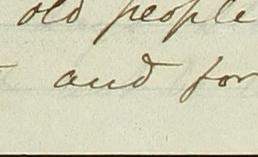 old people
and for